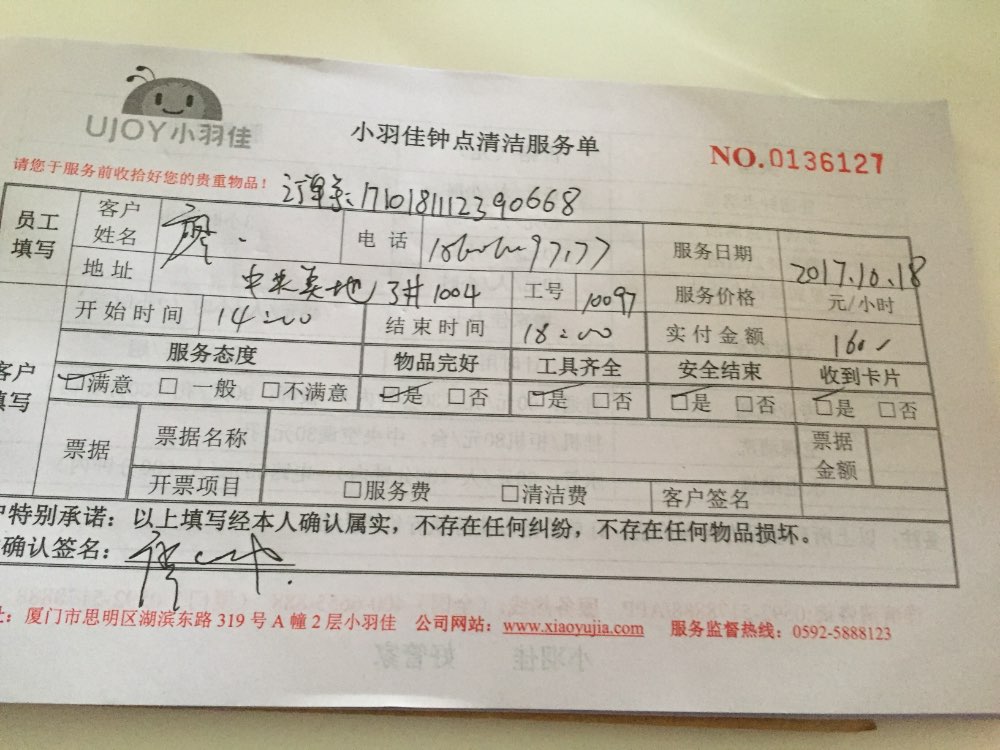 UJOY小羽佳
小羽佳钟点清洁服务单
NO.0136127
请您于服务前收拾好您的贵重物品！
订单号:1710181112390668
员工填写 客户姓名 廖. 电 话 服务日期 2017.10.18
地 址 中央美地 1004 工号 10097 服务价格 元/小时
开始时间 14:00 结束时间 18:00 实付金额 160
服务态度 物品完好 工具齐全 安全结束 收到卡片
客户填写 □满意 □一般 □不满意 □是 □否 □是 □否 □是 □否 □是 □否
票据 票据名称 票据金额
开票项目 □服务费 □清洁费 客户签名
户特别承诺：以上填写经本人确认属实，不存在任何纠纷，不存在任何物品损坏。
确认签名：
址：厦门市思明区湖滨东路 319 号 A 幢 2 层小羽佳 公司网站：www.xiaoyujia.com 服务监督热线：0592-5888123